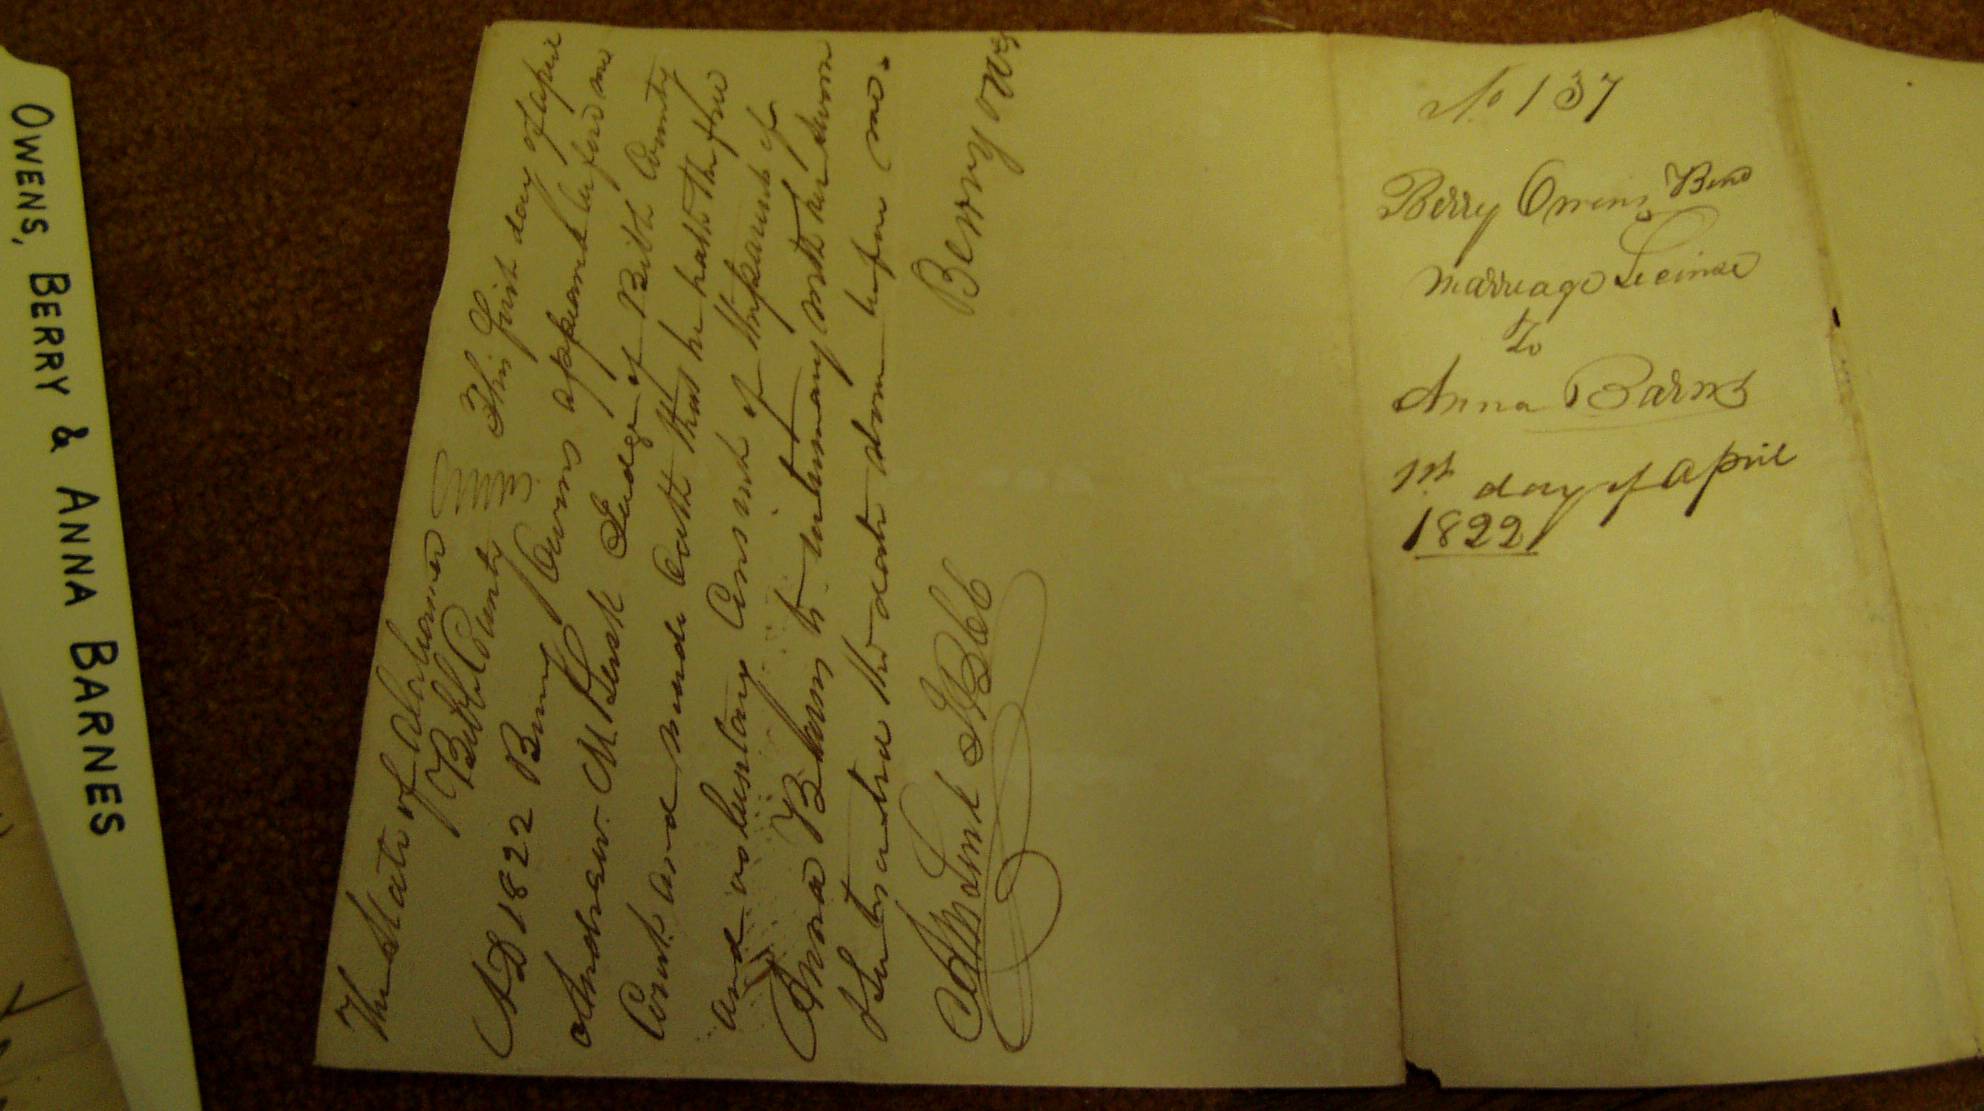 OWENS, BERRY & ANNA BARNES
The State of Alabama
Bibb County
This first day of Aprie
AD 1822 Berry Owens appeared before me
Andrew M Lusk Judge of Bibb County
Court and made Oath that he hath the free
and voluntary Consent of the parents of
Anna Barns to
the date above before me.
Berry ows
No 137
Berry Owens Bond
Marriage Licinse
To
Anna Barns
1st day of April
1822